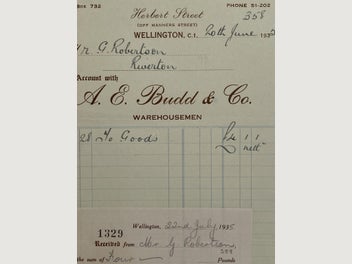 Box 792 PHONE 51-202
Herbert Street 358
(OFF MANNERS STREET)
WELLINGTON, C.1. 20th June 193
Mr G. Robertson
Riverton
Account with
A. E. Budd & Co.
WAREHOUSEMEN
28 To Goods £4 1 1
nett
Wellington, 22nd July 1935
1329
Received from Mr G Robertson
358
the sum of Four Pounds